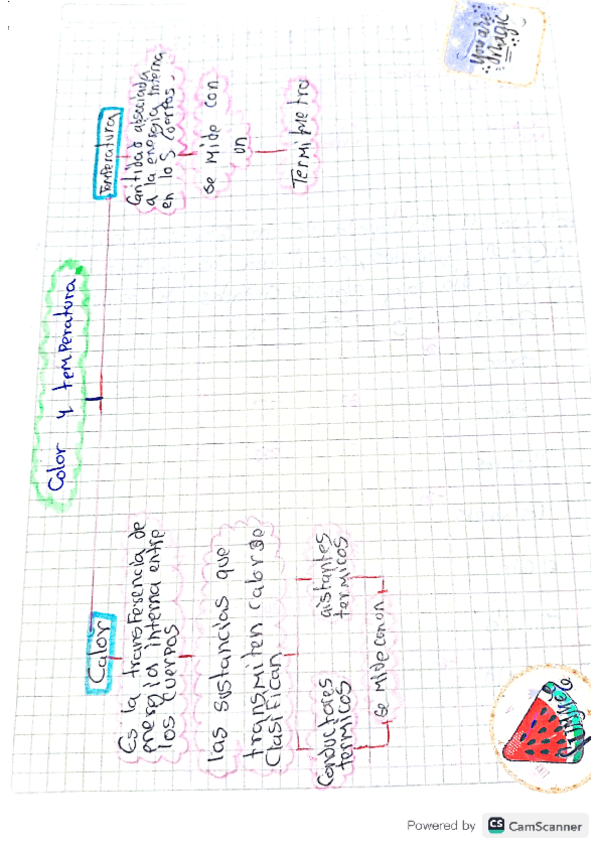 Calor y temperatura
Calor
Es la transferencia de
energia interna entre
los cuerpos
las sustancias que
transmiten calor se
Clasifican
Conductores
termicos
aistantes
termicos
se mide con un
Temperatura
Cantidad asociada
a la energia interna
en los cuerpos.
se mide con
un
Termimetro
You are
magic
Powered by CS CamScanner